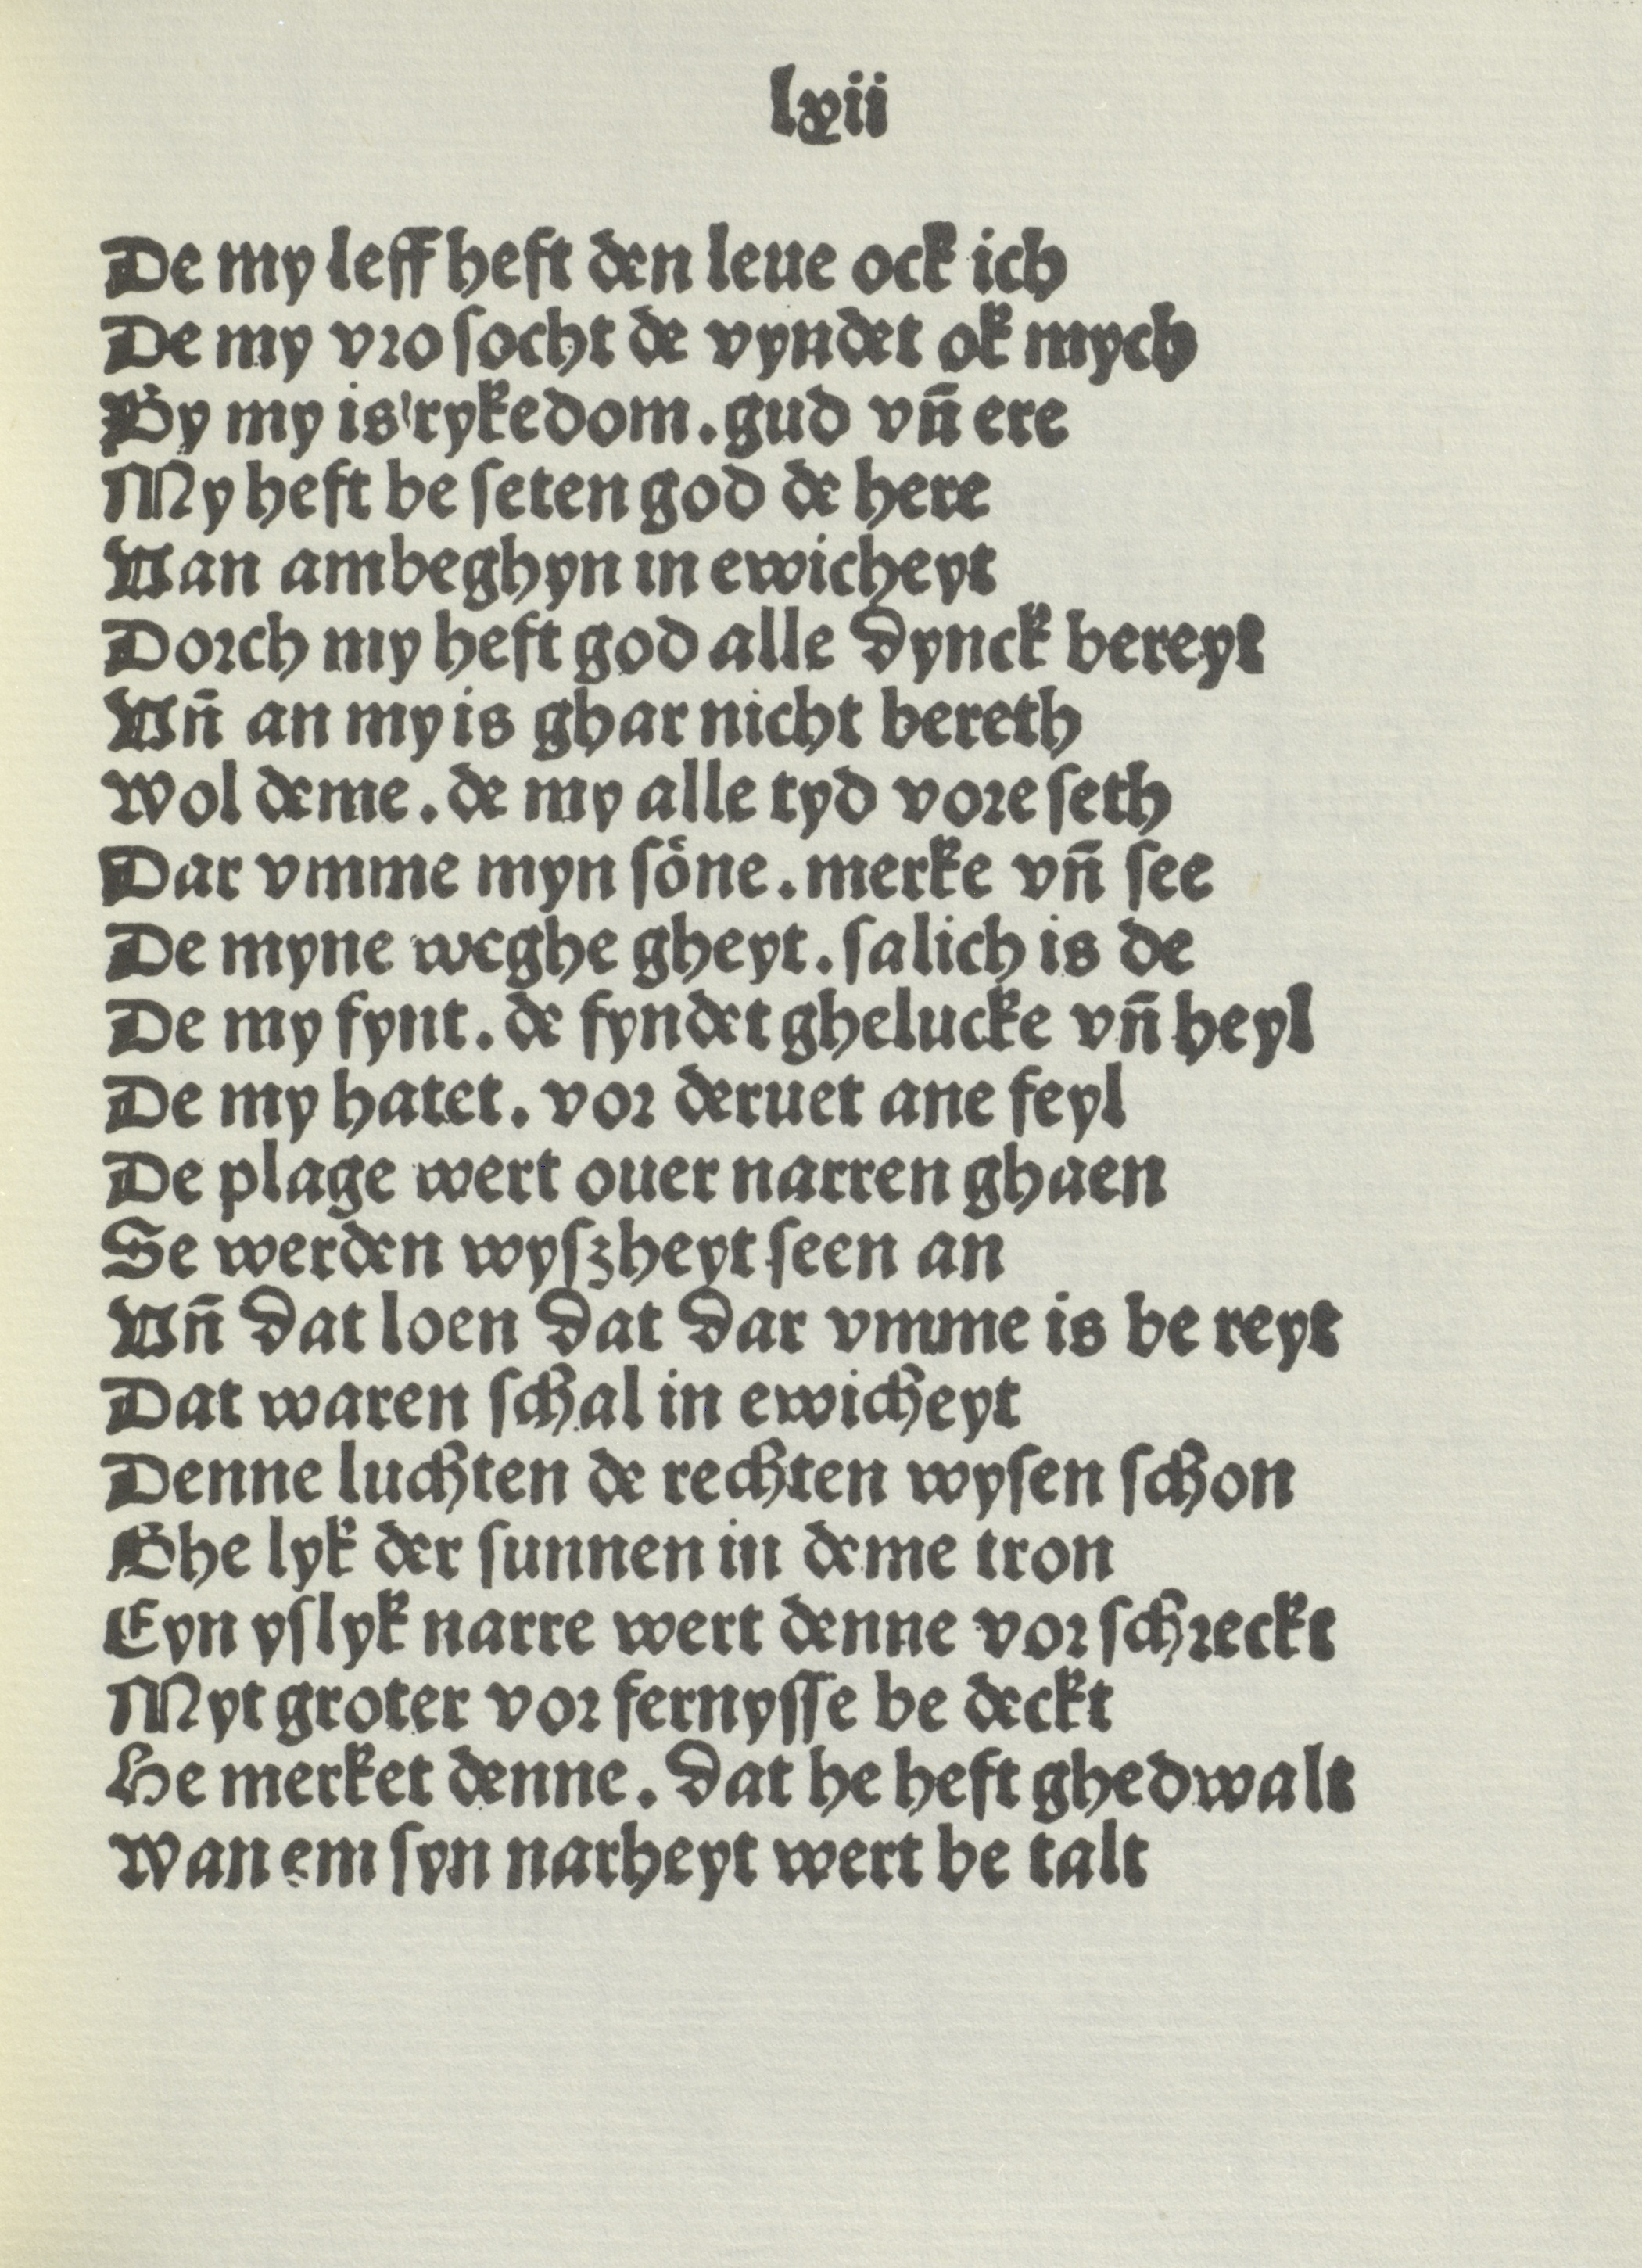 lxii
De my leff heft den leue ock ich
De my vro ſocht de vyndet ok mych
By my is rykedom. gud vñ ere
My heft be ſeten god de here
Van ambeghyn in ewicheyt
Dorch my heft god alle dynck bereyt
Vñ an my is ghar nicht bereth
Wol deme. de my alle tyd vore ſeth
Dar vmme myn ſoͤne. merke vñ ſee
De myne weghe gheyt. ſalich is de
De my fynt. de fyndet ghelucke vñ heyl
De my hatet. vor deruet ane feyl
De plage wert ouer narren ghaen
Se werden wyſzheyt ſeen an
Vñ dat loen dat dar vmme is be reyt
Dat waren ſchal in ewicheyt
Denne luchten de rechten wyſen ſchon
Ghe lyk der ſunnen in deme tron
Eyn yſlyk narre wert denne vor ſchreckt
Myt groter vor fernyſſe be deckt
He merket denne. dat he heft ghedwalt
Wan em ſyn narheyt wert be talt